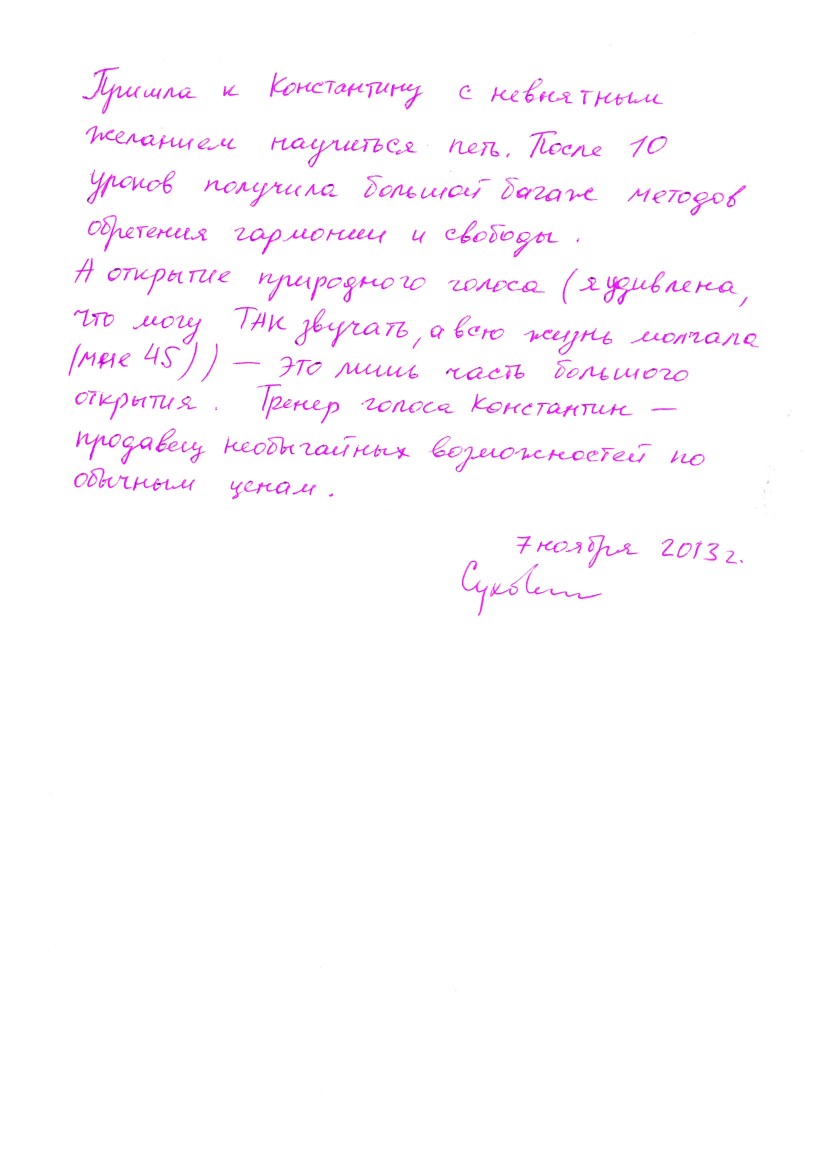 Пришла к Константину с невнятным
желанием научиться петь. После 10
уроков получила большой багаж методов
обретения гармонии и свободы.
А открытие природного голоса (я удивлена,
что могу ТАК звучать, а всю жизнь молчала
(мне 45)) — это лишь часть большого
открытия. Тренер голоса Константин —
продавец необычайных возможностей по
обычным ценам.
7 ноября 2013 г.